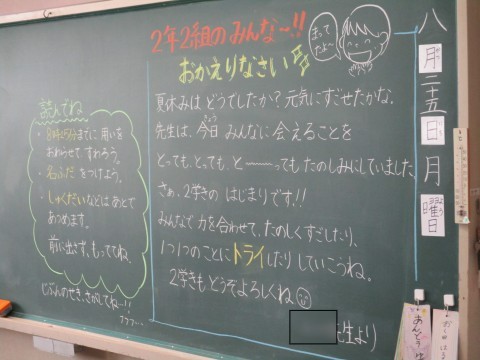 2年2組のみんな〜!!
おかえりなさい
まってたよ〜
夏休みは どうでしたか？元気にすごせたかな。
先生は、今日 みんなに会えることを
きょう
とっても、とっても、と〜〜〜ってもたのしみにしていました。
さぁ、2学きの はじまりです!!
みんなで力を合わせて、たのしくすごしたり、
1つ1つのことにトライしたりしていこうね。
2学きも どうぞよろしくね
生より
読んでね
・8時25分までに 用いを
おわらせて すわろう。
・名ふだ をつけよう。
・しゅくだいなどは あとで
あつめます。
前に出さず、もっててね、
じぶんのせき、さがしてね〜!!
フフフ…
八
月
二十五
日
月
曜日